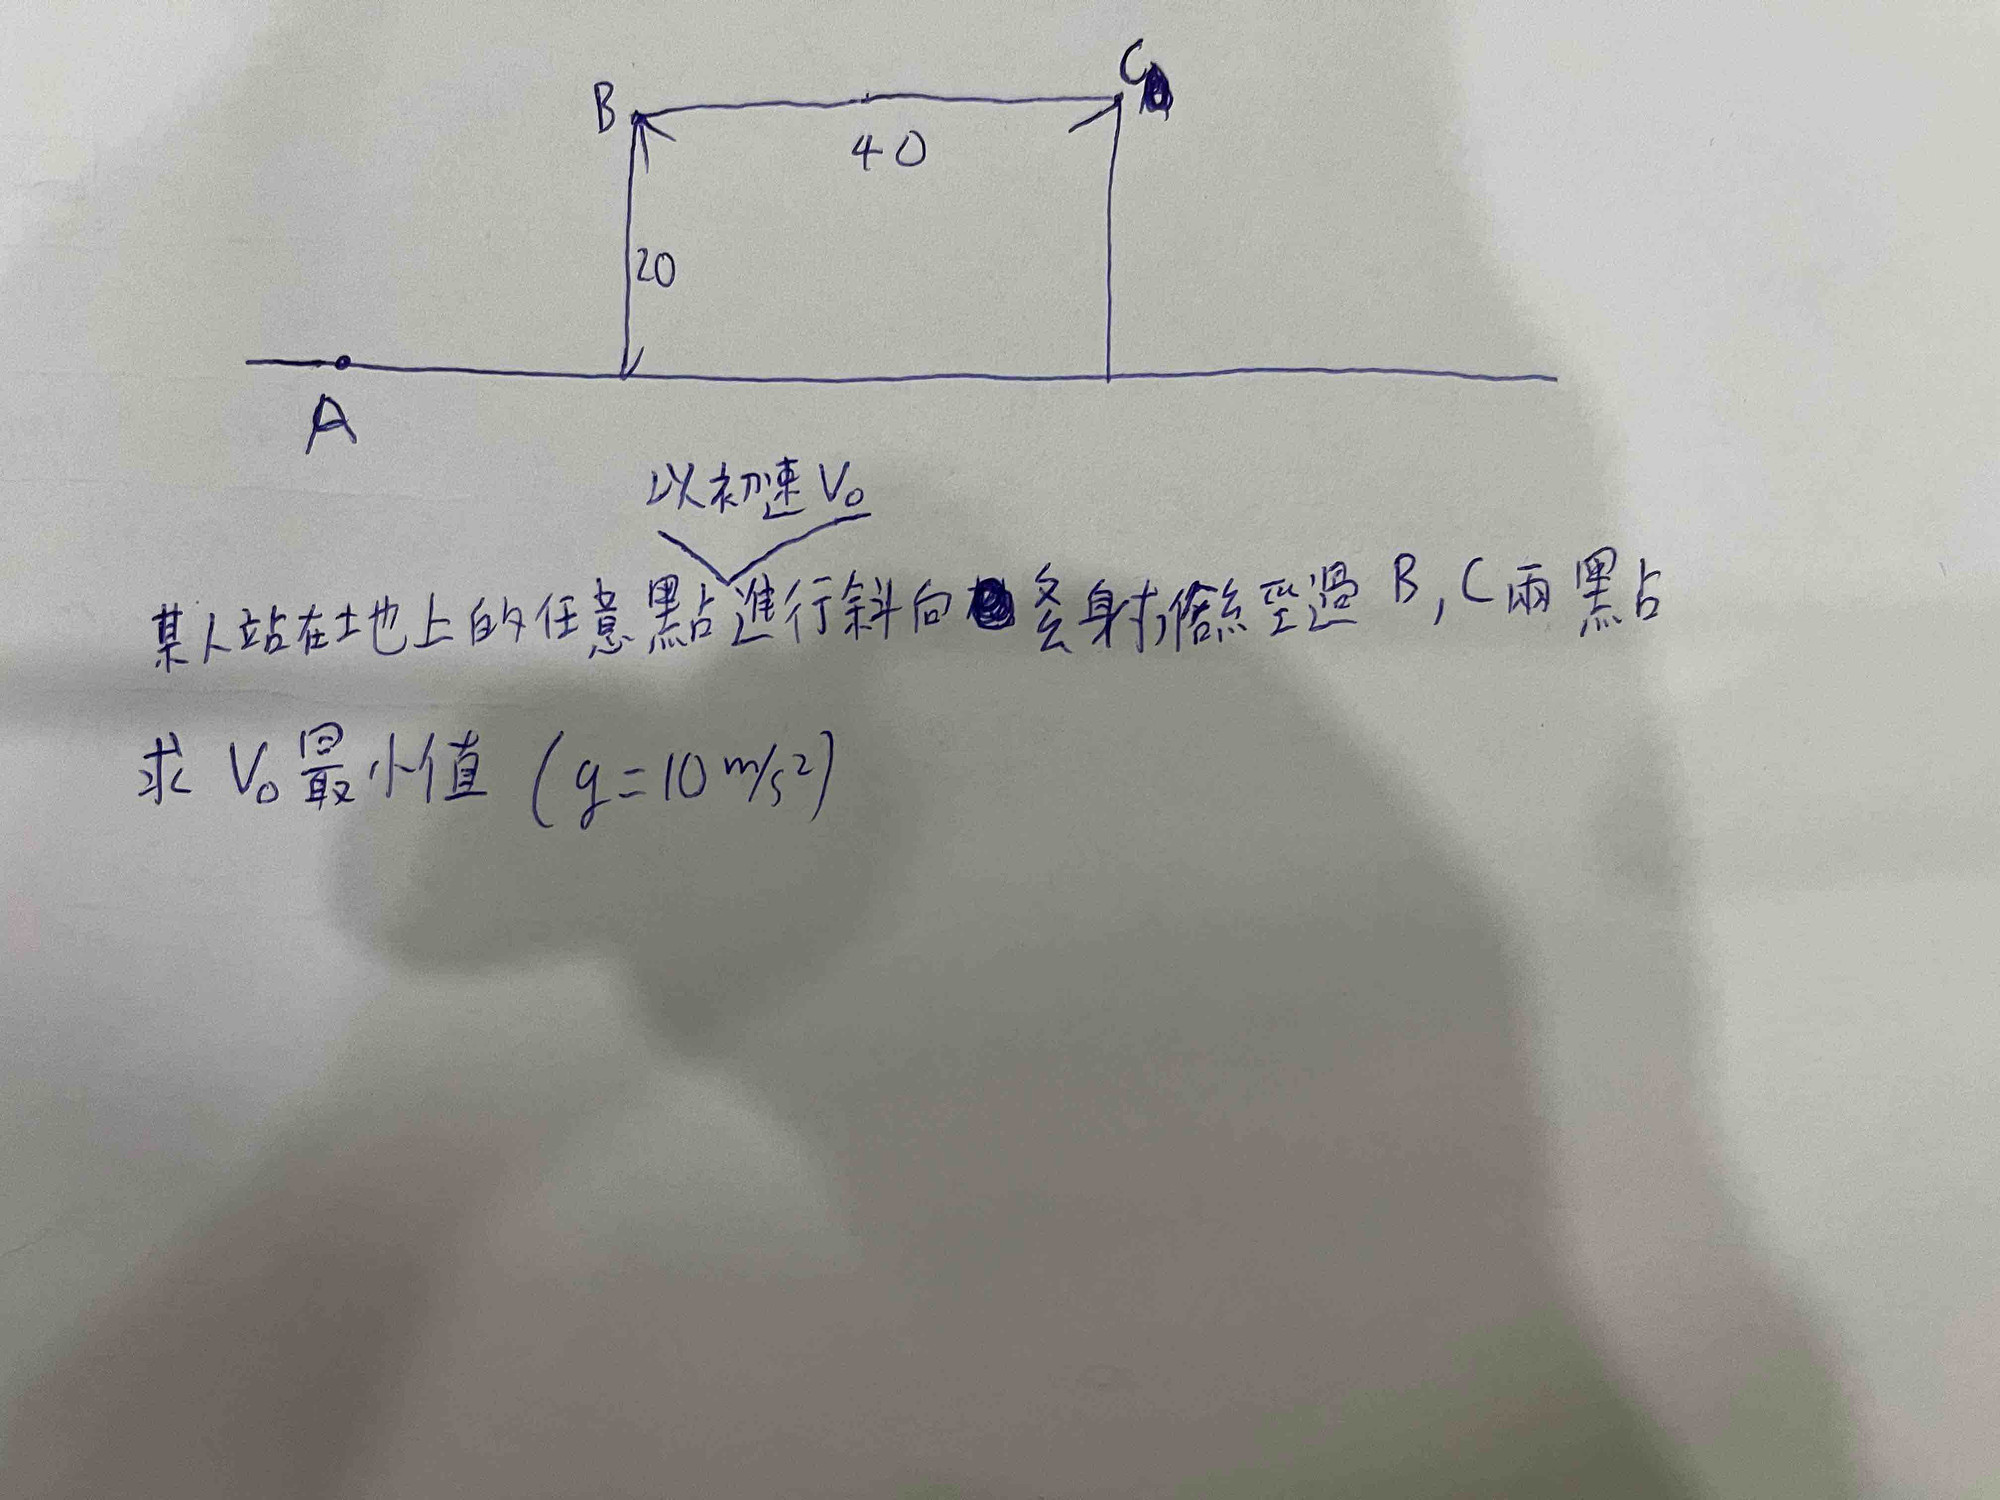 B
C
40
20
A
以初速 V₀
某人站在土地上的任意點進行斜向 射 經過 B, C 兩點
求 V₀ 最小值 (g=10 m/s²)